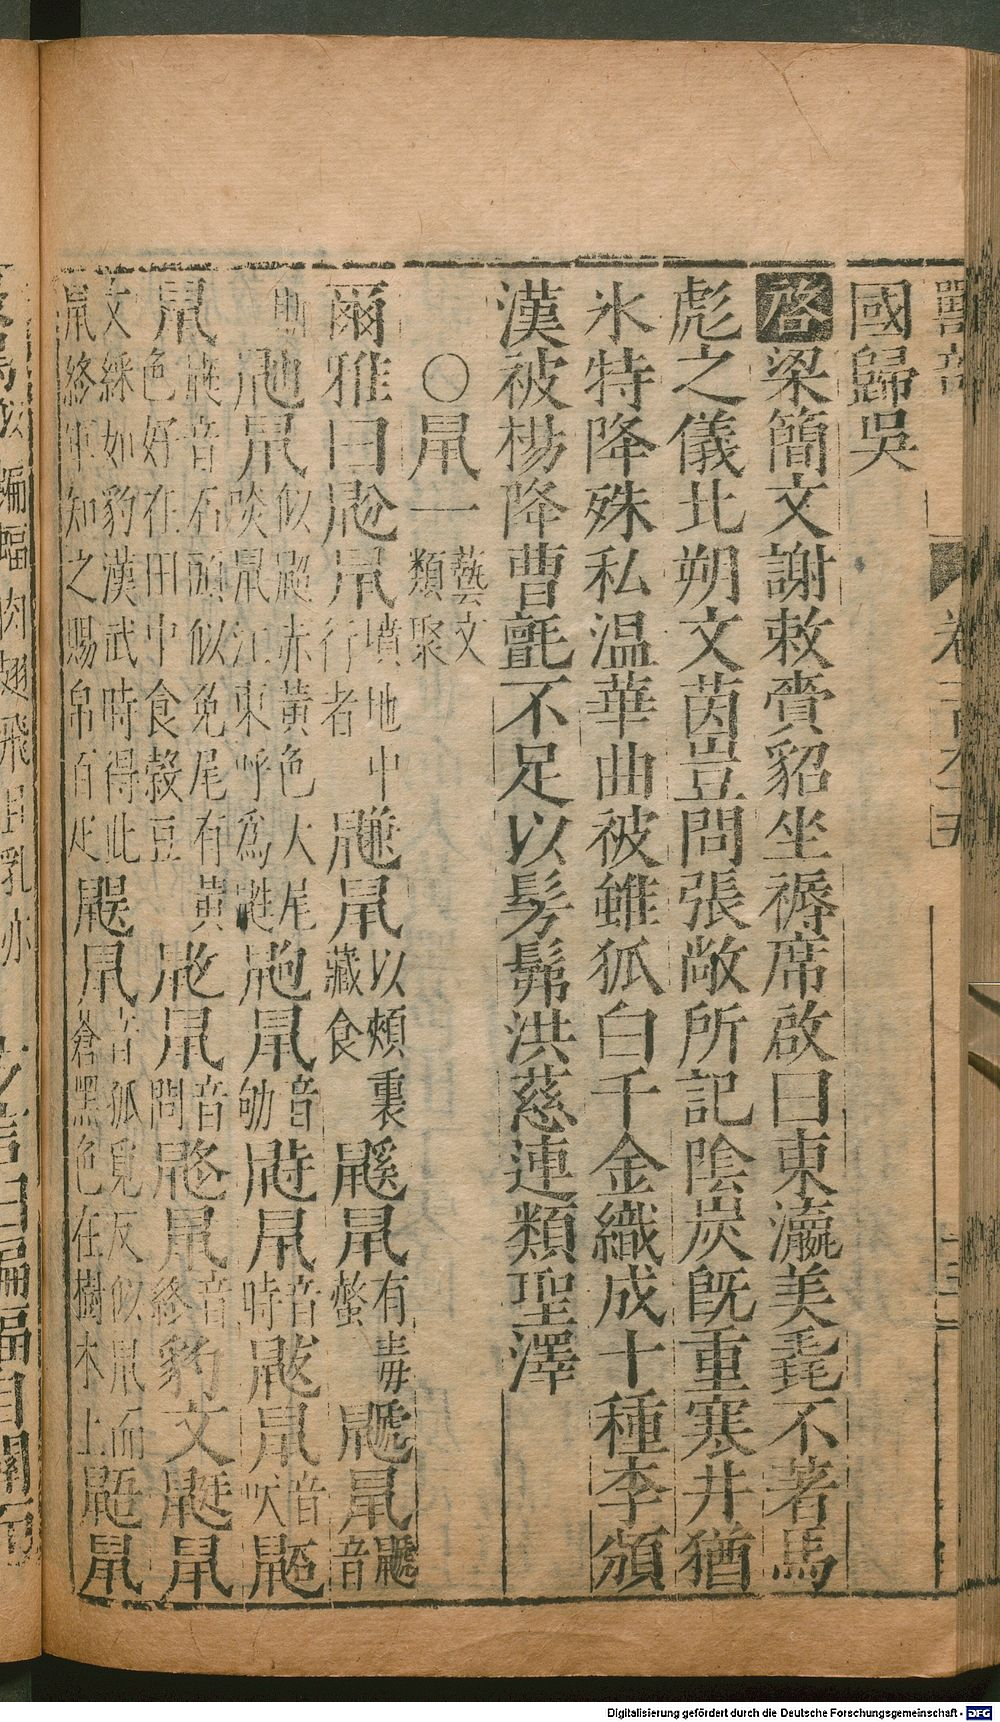 國歸吳
啓梁簡文謝敕賚貂坐褥席啟曰東瀛美毳不著馬
彪之儀北朔文茵豈問張敞所記陰炭旣重寒井猶
氷特降殊私温華曲被雖狐白千金織成十種李頒
漢被楊降曹氈不足以髣髴洪慈連類聖澤
〇鼠一藝文類聚
爾雅曰鼢鼠地中行者鼸鼠以頰裏藏食鼷鼠有毒螫鼶鼠音鼶
鼬鼠似鼦赤黃色大尾啖鼠江東呼爲鼪鼩鼠音劬鼭鼠音時鼣鼠音吠鼫
鼠音石頭似兔尾有黃色好在田中食穀豆鼤鼠音問鼨鼠音終豹文鼮鼠
文綵如豹漢武時得此鼠終軍知之賜帛百疋鼳鼠音狐覓反似鼠而蒼黑色在樹木上鼯鼠
Digitalisierung gefördert durch die Deutsche Forschungsgemeinschaft - DFG